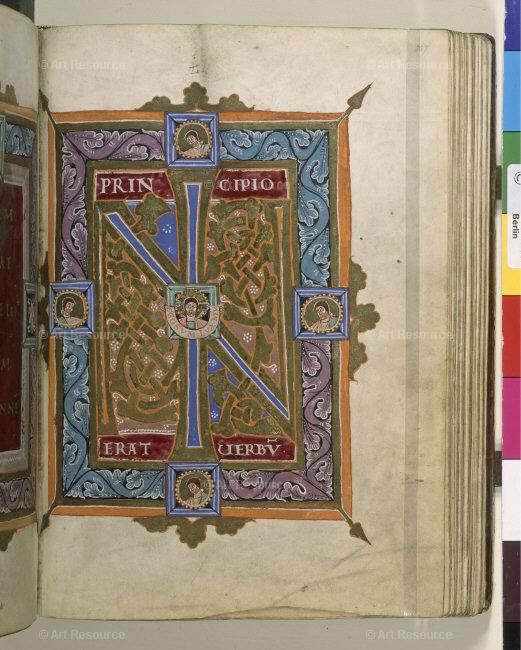 © Art Resource © Art Resource
PRIN CIPIO
IN
© Art Resource © Art Resource
ERAT UERBV̄
© Art Resource © Art Resource
©
Berlin